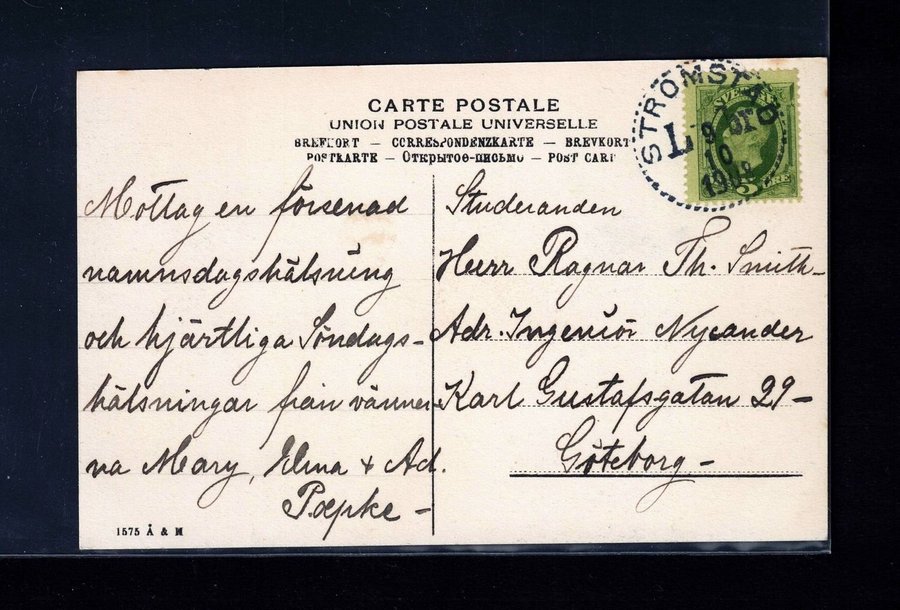 CARTE POSTALE
UNION POSTALE UNIVERSELLE
BREFKORT — CORRESPONDENZKARTE — BREVKORT
POSTKARTE — Открытое-письмо — POST CART
STRÖMSTAD
L
10
Mottag en försenad
namnsdagshälsning
och hjärtliga Söndags-
hälsningar från vänner
na Mary, Elma + Ad.
Pæpke -
Studeranden
Herr Ragnar Th. Smith-
Adr. Ingeniör Nycander
Karl Gustafsgatan 29-
Göteborg-
1575 Å & M